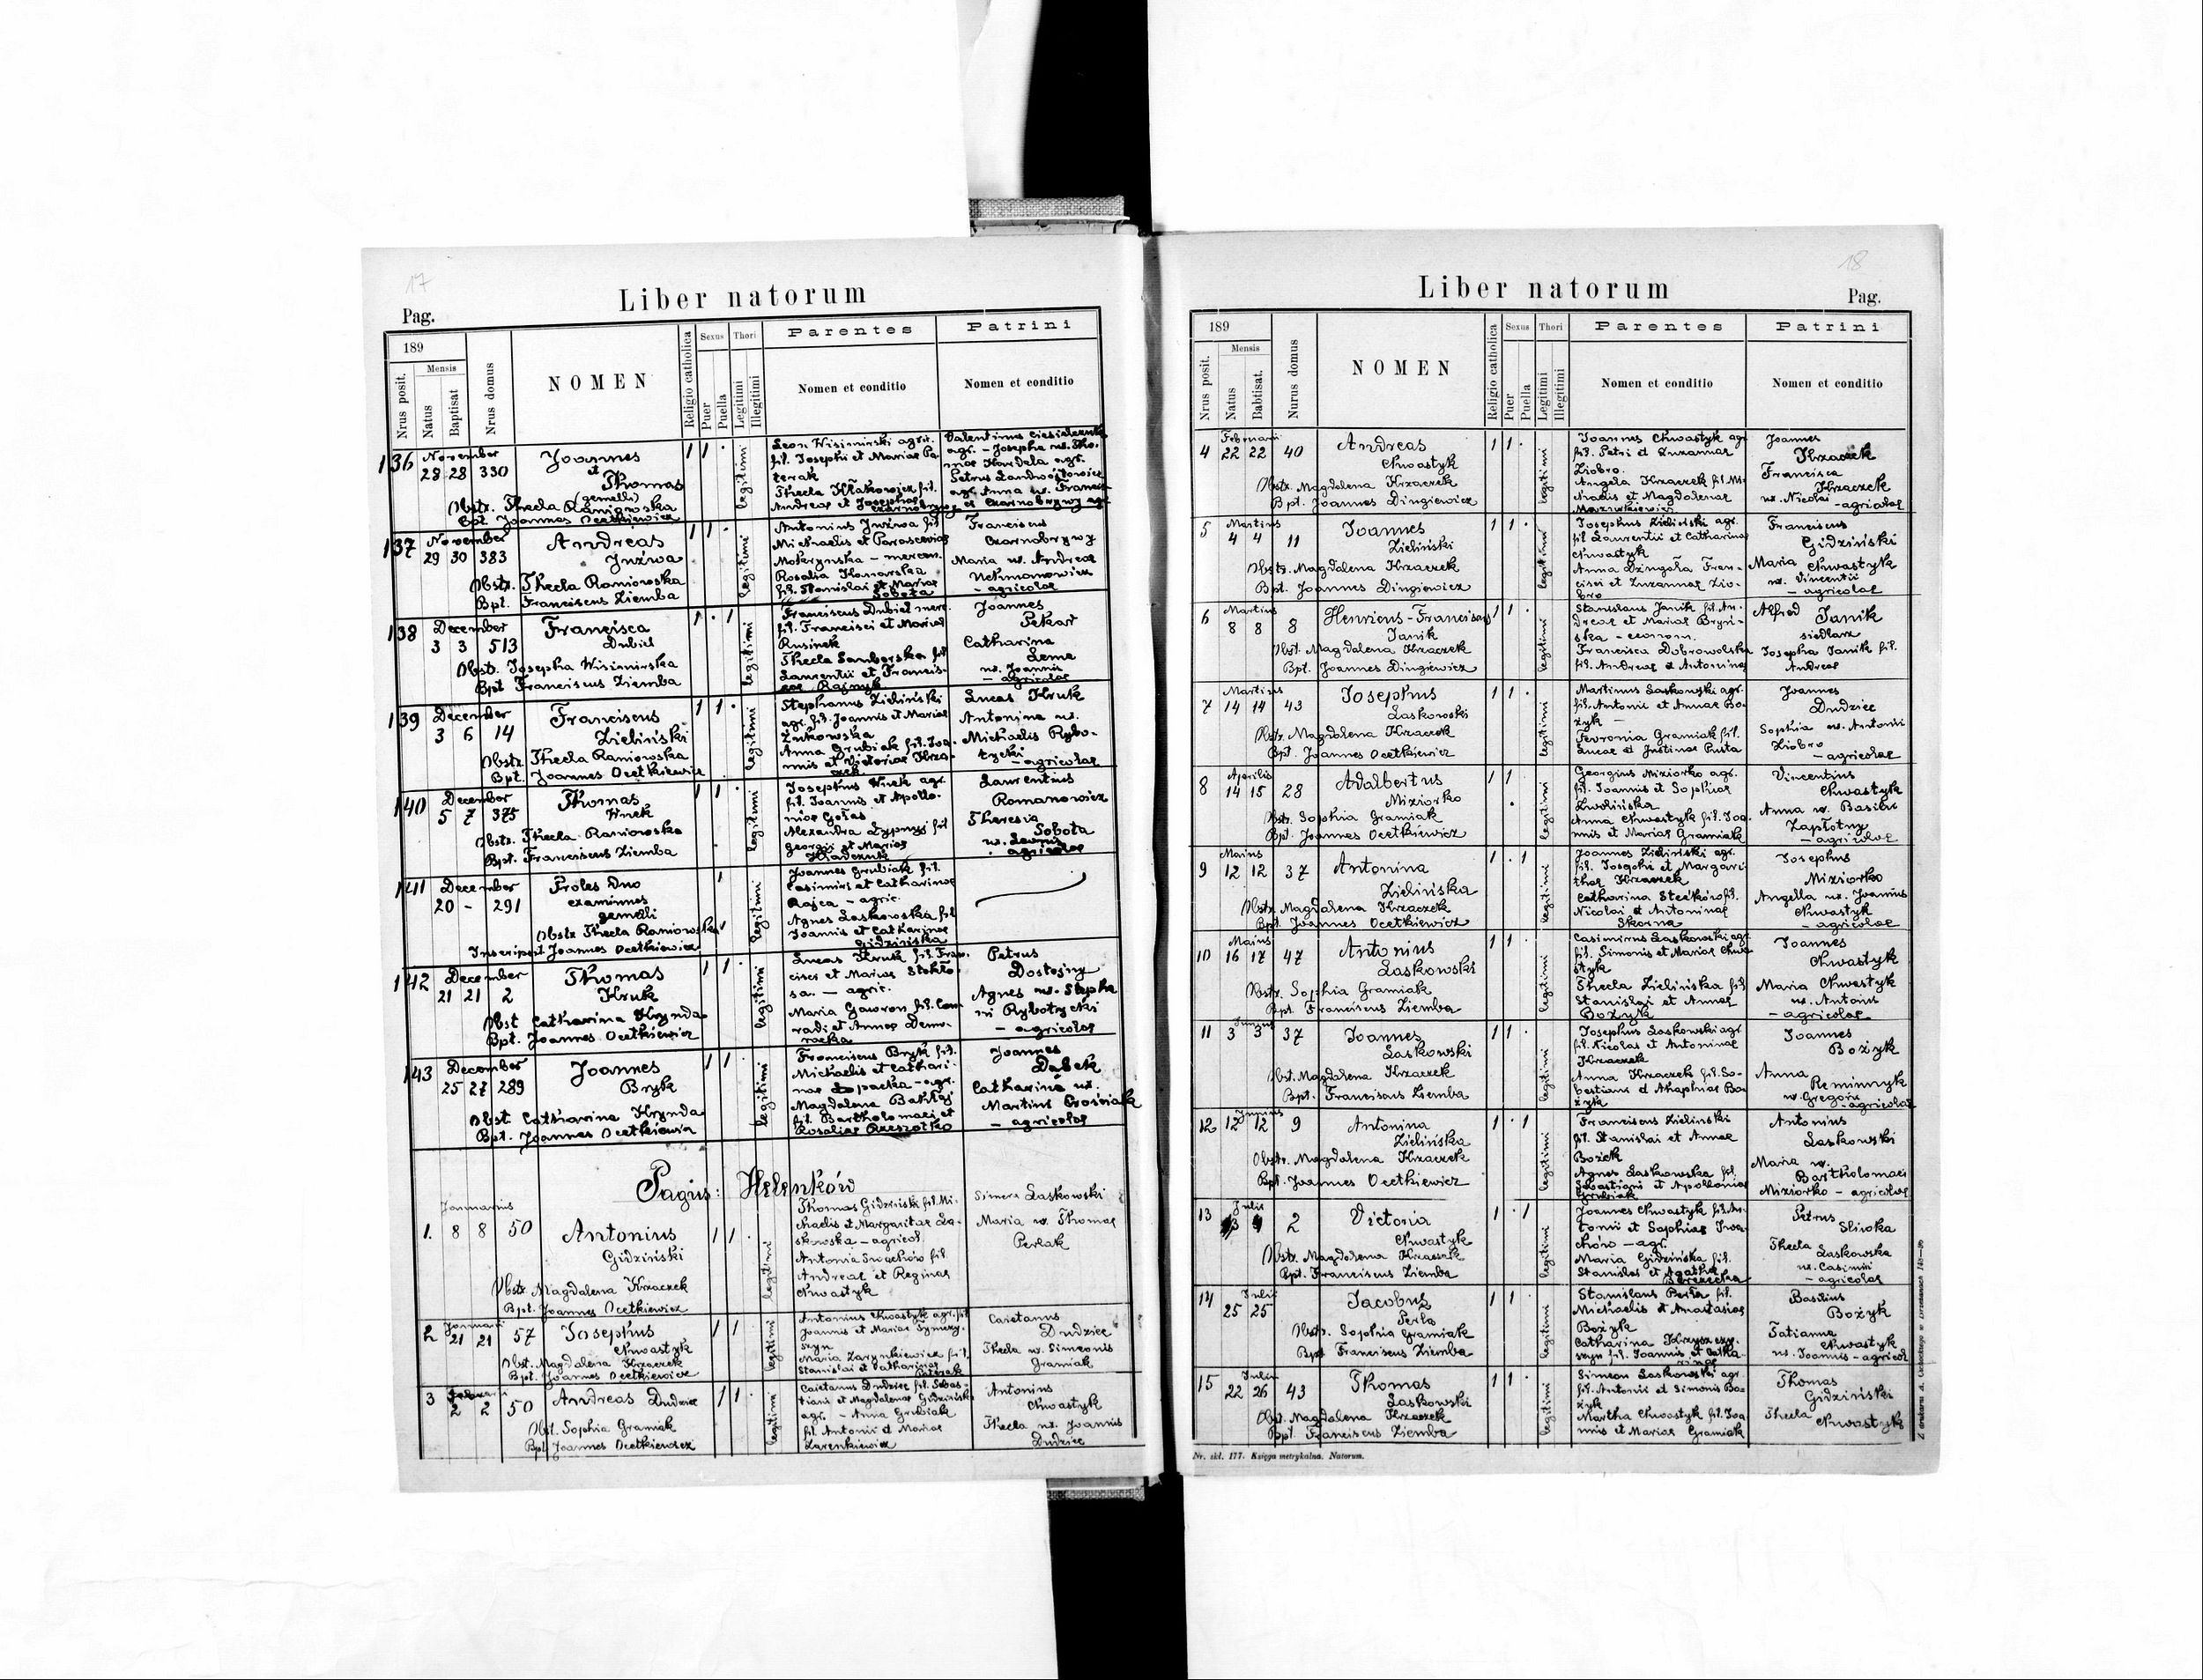 17
Liber natorum
Pag.
189
Nrus posit.
Mensis
Natus
Baptisat
Nrus domus
NOMEN
Religio catholica
Sexus
Puer
Puella
Thori
Legitimi
Illegitimi
Parentes
Nomen et conditio
Patrini
Nomen et conditio
136 November
28 28 330
Joannes
et
Thomas
(gemelli)
Obstr. Thecla Raniowska
Bpt. Joannes Ocetkiewicz
1 1 ·
legitimi
Leon Wisimirski agric.
fil. Josephi et Mariae Pa
terak
Thecla
Andreae et Josephae
137 November
29 30 383
Andreas
Juźwa
Obstr. Thecla Raniowska
Bpt. Franciscus Ziemba
1 1 ·
legitimi
Antonius Juźwa fil
Michaelis et Parasceviae
Mokrynska - mercen.
Rosalia Konarska
fil. Stanislai et Mariae
Sobota
Franciscus
Czarnobrywy
Maria ux. Andreae
- agricolae
138 December
3 3 513
Francisca
Dubiel
Obstr. Josepha Wisimirska
Bpt Franciscus Ziemba
1 · 1
legitimi
Franciscus Dubiel merc.
fil. Francisci et Mariae
Rusinek
Thecla Samborska fil
Laurentii et Francis-
cae
Joannes
Pekar
Catharina
ux. Joannis
- agricolae
139 December
3 6 14
Franciscus
Zieliński
Obstr. Thecla Raniowska
Bpt. Joannes Ocetkiewicz
1 1 ·
legitimi
Stephanus Zieliński
agr. fil. Joannis et Mariae
Żukowska
Anna Grubiak fil. Joa-
nnis et Victoriae Krza-
czek
Lucas Kruk
Antonina ux.
Michaelis Rybo-
tycki
- agricolae
140 December
5 7 375
Thomas
Wnek
Obstr. Thecla Raniowska
Bpt. Franciscus Ziemba
1 1 ·
legitimi
Josephus Wnek agr.
fil. Joannis et Apollo-
niae
Alexandra fil
Georgii et Mariae
Laurentius
Romanowicz
Theresia
Sobota
agricolae
141 December
20 - 291
Proles duo
exanimes
gemelli
Obstr Thecla Raniowska
Inscripsit Joannes Ocetkiewicz
legitimi
Joannes Grubiak fil.
Casimiri et Catharinae
Rajca - agric.
Agnes Laskowska fil
Joannis et Catharinae
Gidzińska
142 December
21 21 2
Thomas
Kruk
Obst Catharina Krynda
Bpt. Joannes Ocetkiewicz
1 1 ·
legitimi
Lucas Kruk fil. Fran-
cisci et Mariae
sa. - agric.
Maria Gawron fil. Con-
radi et Annae
Petrus
Dostojny
Agnes ux. Stepha
ni Rybotycki
- agricolae
143 December
25 27 289
Joannes
Bryk
Obst Catharina Krynda
Bpt. Joannes Ocetkiewicz
1 1
legitimi
Franciscus Bryk fil.
Michaelis et Cathari-
nae
Magdalena
fil. Bartholomaei et
Rosaliae Rzeszotko
Joannes
Dąbek
Catharina ux.
Martini
- agricolae
Pagus: Helenków
Januarius
1. 8 8 50
Antonius
Gidziński
Obstr. Magdalena Krzaczek
Bpt. Joannes Ocetkiewicz
1 1 ·
legitimi
Thomas Gidziński fil. Mi-
chaelis et Margaritae La-
skowska - agricol.
Antonia fil.
Andreae et Reginae
Chwastyk
Simeon Laskowski
Maria ux. Thomae
Perlak
2 Januarii
21 21 57
Josephus
Chwastyk
Obst. Magdalena Krzaczek
Bpt. Joannes Ocetkiewicz
1 1 ·
legitimi
Antonius Chwastyk agr. fil
Joannis et Mariae
Maria Zarynkiewicz fil.
Stanislai et Catharinae
Paterak
Caietanus
Dudziec
Thecla ux. Simeonis
Gramiak
3 Februarii
2 2 50
Andreas Dudziec
Obst. Sophia Gramiak
Bpt. Joannes Ocetkiewicz
1 1 ·
legitimi
Caietanus Dudziec fil. Sebas-
tiani et Magdalenae Gidzińska
agr. - Anna Grubiak
fil. Antonii et Mariae
Zarenkiewicz
Antonius
Chwastyk
Thecla ux. Joannis
Dudziec
18
Liber natorum
Pag.
189
Nrus posit.
Mensis
Natus
Babtisat.
Nurus domus
NOMEN
Religio catholica
Sexus
Puer
Puella
Thori
Legitimi
Illegitimi
Parentes
Nomen et conditio
Patrini
Nomen et conditio
4 Februarii
22 22 40
Andreas
Chwastyk
Obstr. Magdalena Krzaczek
Bpt. Joannes Dingiewicz
1 1 ·
legitimi
Joannes Chwastyk agr
fil. Petri et Zuzannae
Ziobro.
Angela Krzaczek fil. Mi-
chaelis et Magdalenae
Joannes
Krzaczek
Francisca
Krzaczek
ux. Nicolai
- agricolae
5 Martius
4 4 11
Joannes
Zieliński
Obstr. Magdalena Krzaczek
Bpt. Joannes Dingiewicz
1 1 ·
legitimi
Josephus Zieliński agr.
fil Laurentii et Catharinae
Chwastyk
Anna Dzingała Fran-
cisci et Zuzannae Zio-
bro
Franciscus
Gidziński
Maria Chwastyk
ux. Vincentii
- agricolae
6 Martius
8 8 8
Henricus-Franciscus
Janik
Obst. Magdalena Krzaczek
Bpt. Joannes Dingiewicz
1 1 ·
legitimi
Stanislaus Janik fil. An-
dreae et Mariae Bryń-
ska - econom.
Francisca Dobrowolska
fil. Andreae et Antoninae
Alfred Janik
siedlarz
Josepha Janik fil.
Andreae
7 Martius
14 14 43
Josephus
Laskowski
Obstr. Magdalena Krzaczek
Bpt. Joannes Ocetkiewicz
1 1 ·
legitimi
Martinus Laskowski agr.
fil. Antonii et Annae Bo-
żyk -
Fevronia Gramiak fil.
Lucae et Justinae Puta
Joannes
Dudziec
Sophia ux. Antonii
Ziobro
- agricolae
8 Aprilis
14 15 28
Adalbertus
Miziorko
Obstr. Sophia Gramiak
Bpt. Joannes Ocetkiewicz
1 1 ·
legitimi
Georgius Miziorko agr.
fil. Joannis et Sophiae
Anna Chwastyk fil. Joa-
nnis et Mariae Gramiak
Vincentius
Chwastyk
Anna ux. Basilii
Zapłotny
- agricolae
9 Maius
12 12 37
Antonina
Zielińska
Obstr. Magdalena Krzaczek
Bpt. Joannes Ocetkiewicz
1 · 1
legitimi
Joannes Zieliński agr.
fil. Josephi et Margari-
thae Krzaczek
Catharina Stećków fil.
Nicolai et Antoninae
Skorna
Josephus
Miziorko
Angella ux. Joannis
Chwastyk
- agricolae
10 Maius
16 17 47
Antonius
Laskowski
Obstr. Sophia Gramiak
Bpt. Franciscus Ziemba
1 1 ·
legitimi
Casimirus Laskowski agr
fil. Simonis et Mariae Chwa
styk
Thecla Zielińska fil
Stanislai et Annae
Bożyk
Joannes
Chwastyk
Maria Chwastyk
ux. Antonii
- agricolae
11 Junius
3 3 37
Joannes
Laskowski
Obst. Magdalena Krzaczek
Bpt. Franciscus Ziemba
1 1 ·
legitimi
Josephus Laskowski agr
fil. Nicolas et Antoninae
Krzaczek
Anna Krzaczek fil. Se-
bastiani et Ahaphiae Bo-
żyk
Joannes
Bożyk
Anna
ux. Gregorii
- agricolae
12 Junius
12 12 9
Antonina
Zielińska
Obstr. Magdalena Krzaczek
Bpt. Joannes Ocetkiewicz
1 · 1
legitimi
Franciscus Zieliński
fil. Stanislai et Annae
Bożek
Agnes Laskowska fil.
Sebastiani et Apolloniae
Grubiak
Antonius
Laskowski
Maria ux.
Bartholomaei
Miziorko - agricolae
13 Julii
2
Victoria
Chwastyk
Obstr. Magdalena Krzaczek
Bpt. Franciscus Ziemba
1 · 1
legitimi
Joannes Chwastyk fil. An-
tonii et Sophiae Iwa-
chów - agr.
Maria Gidzińska fil.
Stanislai et Agathae
Petrus
Sliwka
Thecla
Laskowska
ux. Casimiri
- agricolae
14 Julii
25 25
Jacobus
Perla
Obstr. Sophia Gramiak
Bpt Franciscus Ziemba
1 1 ·
legitimi
Stanislaus Perla fil.
Michaelis et Anastasiae
Bożyk
Catharina Krzyszczy-
szyn fil. Joannis et Catha-
rinae
Basilius
Bożyk
Tatianna
Chwastyk
ux. Joannis - agricol
15 Julii
22 26 43
Thomas
Laskowski
Obst. Magdalena Krzaczek
Bpt. Franciscus Ziemba
1 1 ·
legitimi
Simeon Laskowski agr
fil. Antonii et Simonis Bo-
żyk
Martha Chwastyk fil. Joa-
nnis et Mariae Gramiak
Thomas
Gidziński
Thecla Chwastyk
Nr. skl. 177. Księga metrykalna. Natorum.